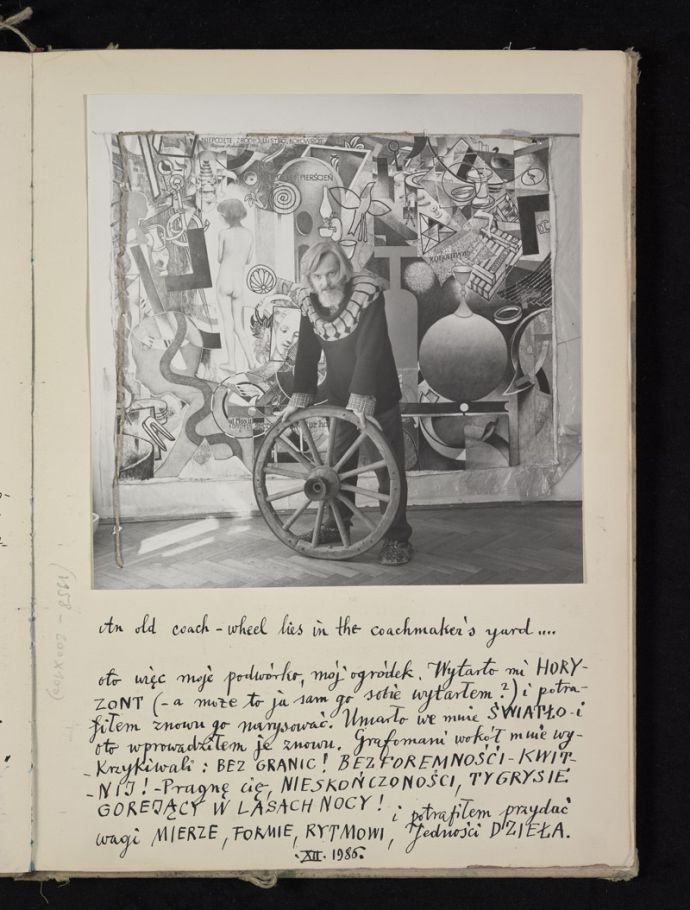 PIERŚCIEŃ
An old coach-wheel lies in the coachmaker's yard....
oto więc moje podwórko, mój ogródek. Wytarło mi HORY-
ZONT (-a może to ja sam go sobie wytarłem?) i potra-
fiłem znowu go narysować. Umarło we mnie ŚWIATŁO-i
oto wprowadziłem je znowu. Grafomani wokół mnie wy-
-krzykiwali: BEZ GRANIC! BEZFOREMNOŚCI-KWIT-
-NIJ!-Pragnę cię, NIESKOŃCZONOŚCI, TYGRYSIE
GOREJĄCY W LASACH NOCY! i potrafiłem przydać
wagi MIERZE, FORMIE, RYTMOWI, Jedności DZIEŁA.
·XII. 1986.